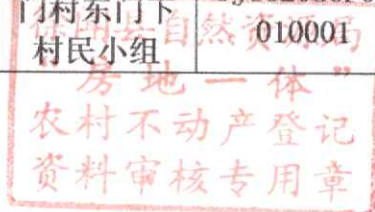 门村东门下
村民小组
010001
自然资
房地一体”
农村不动产登记
资料审核专用章